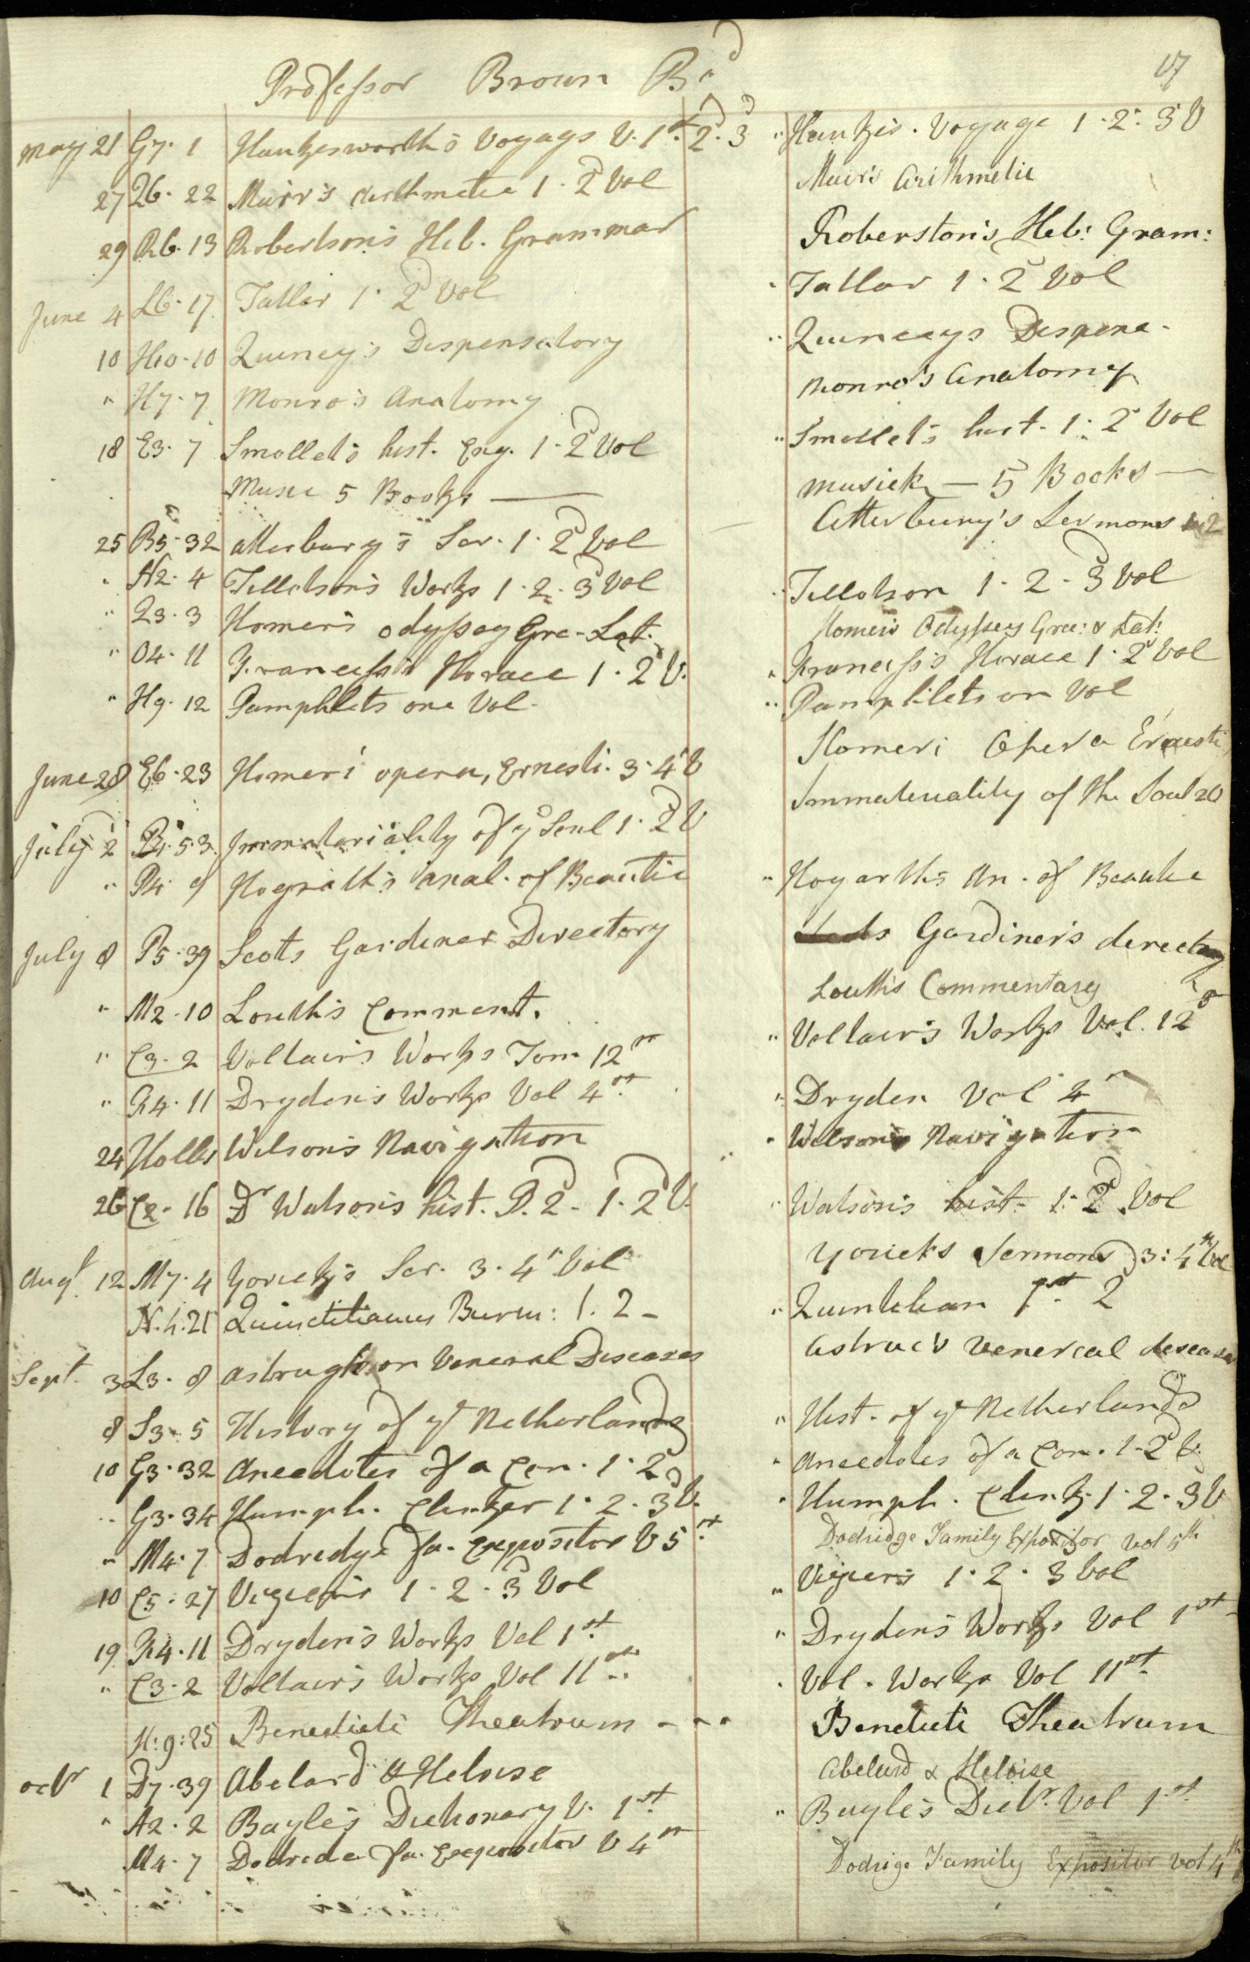 17
Professor Brown Bd
May 21 G7. 1 Haukesworth's Voyags V. 1st. 2d. 3 " Haukes. Voyage 1. 2. 3 V
27 Q6. 22 Muir's Arithmetic 1. 2d Vol Muir's Arithmetic
29 R6. 13 Robertson's Heb. Grammar Roberston's Heb: Gram:
June 4 L6. 17. Tatler 1. 2d Vol " Tatlar 1. 2d Vol
10 H10. 10 Quincy's Dispensatory " Quinceys Dispena-
" H7. 7 Monro's Anatomy Monro's Anatomy
18 E3. 7 Smollet's hist. Eng. 1. 2d Vol " Smollet's hist. 1. 2d Vol
Music 5 Books — Musick — 5 Books —
25 B5. 32 Atterbury's Ser. 1. 2d Vol Atterbury's Sermons 1. 2
" A2. 4 Tillotson's Works 1. 2. 3d Vol " Tillotson 1. 2. 3d Vol
" Q3. 3 Homer's Odyssey Gre-Lat. Homers Odyssey Gree: & Lat:
" O4. 11 Franciss's Horace 1. 2d V. " Franciss's Horace 1. 2d Vol
" H9. 12 Pamphlets one Vol. " Pamphlets on Vol
June 28 E6. 23 Homeri opera, Ernesti. 3. 4 V Homeri Opera Ernesti
July 2 B. 5. 3. Immateriality of ye Soul 1. 2d V Immateriality of the Soul 2V
" P4. 9 Hograth's anal. of Beautie " Hogarths An. of Beautie
July 8 P5. 39 Scots Gardener Directory Gardiner's directory
" M2. 10 Louth's Comment. Louth's Commentary
" C3. 2 Voltair's Works Tom 12 " Voltair's Works Vol. 12
" R4. 11 Dryden's Works Vol 4 " Dryden Vol 4
24 Holls Wilson's Navigation " Wilson's Navigation
26 C2. 16 Dr Watson's hist. P. 2. 1. 2d V. " Watson's hist. 1. 2d Vol
Augt. 12 M7. 4 Yorick's Ser. 3. 4 Vol Yorick's Sermons 3: 4th Vol
N. 4. 21 Quinctilianus Burm: 1. 2 - " Quintilian 1st. 2
Sept. 3 L3. 8 Astrugh on Veneral Diseases Astruc's Venereal diseases
8 S3. 5 History of ye Netherlands " Hist. of ye Netherlands
10 G3. 32 Anecdotes of a Con. 1. 2d " Anecdotes of a Con. 1. 2d V.
" G3. 34 Humph. Clinker 1. 2. 3d V. " Humph. Clink. 1. 2. 3 V
" M4. 7 Dodredge Fa. Expositor V 5 Dodridge Family Expositor vol 5th
10 C5. 27 1. 2. 3d Vol " 1. 2. 3 Vol
19 R4. 11 Dryden's Works Vol 1st " Dryden's Works Vol 1st
" C3. 2 Voltair's Works Vol 11 " Vol. Works Vol 11
H: 9: 25 Benedicti Theatrum - - - Benedicti Theatrum
octr 1 D7. 39 Abelard & Heloise Abelard & Heloise
" A2. 2 Bayle's Dictionary V. 1st " Bayle's Dictr. Vol 1st
M4. 7 Dodrede Fa. Expositor V 4 Dodrige Family Expositor vol 4th